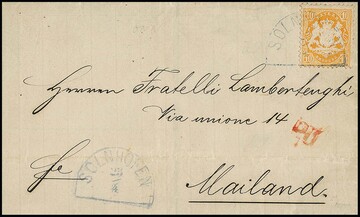 SOLN
Herren Fratelli Lambertenghi
Via unione 14
PD
fr
SOLNHOFEN
Mailand.